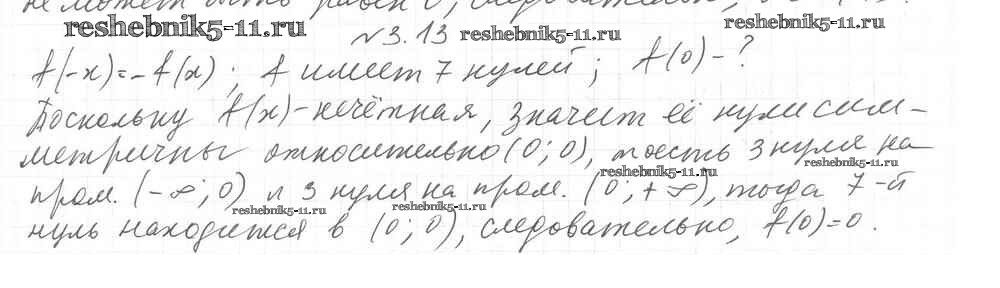 не может быть равен 0, следовательно,
reshebnik5-11.ru
№3.13 reshebnik5-11.ru reshebnik5-11.ru
f(-x)=-f(x); f имеет 7 нулей; f(0)-?
Поскольку f(x)-нечётная, значит её нули сим-
метричны относительно (0;0), то есть 3 нуля на
reshebnik5-11.ru
пром. (-∞;0) и 3 нуля на пром. (0;+∞), тогда 7-й
reshebnik5-11.ru reshebnik5-11.ru
нуль находится в (0;0), следовательно, f(0)=0.